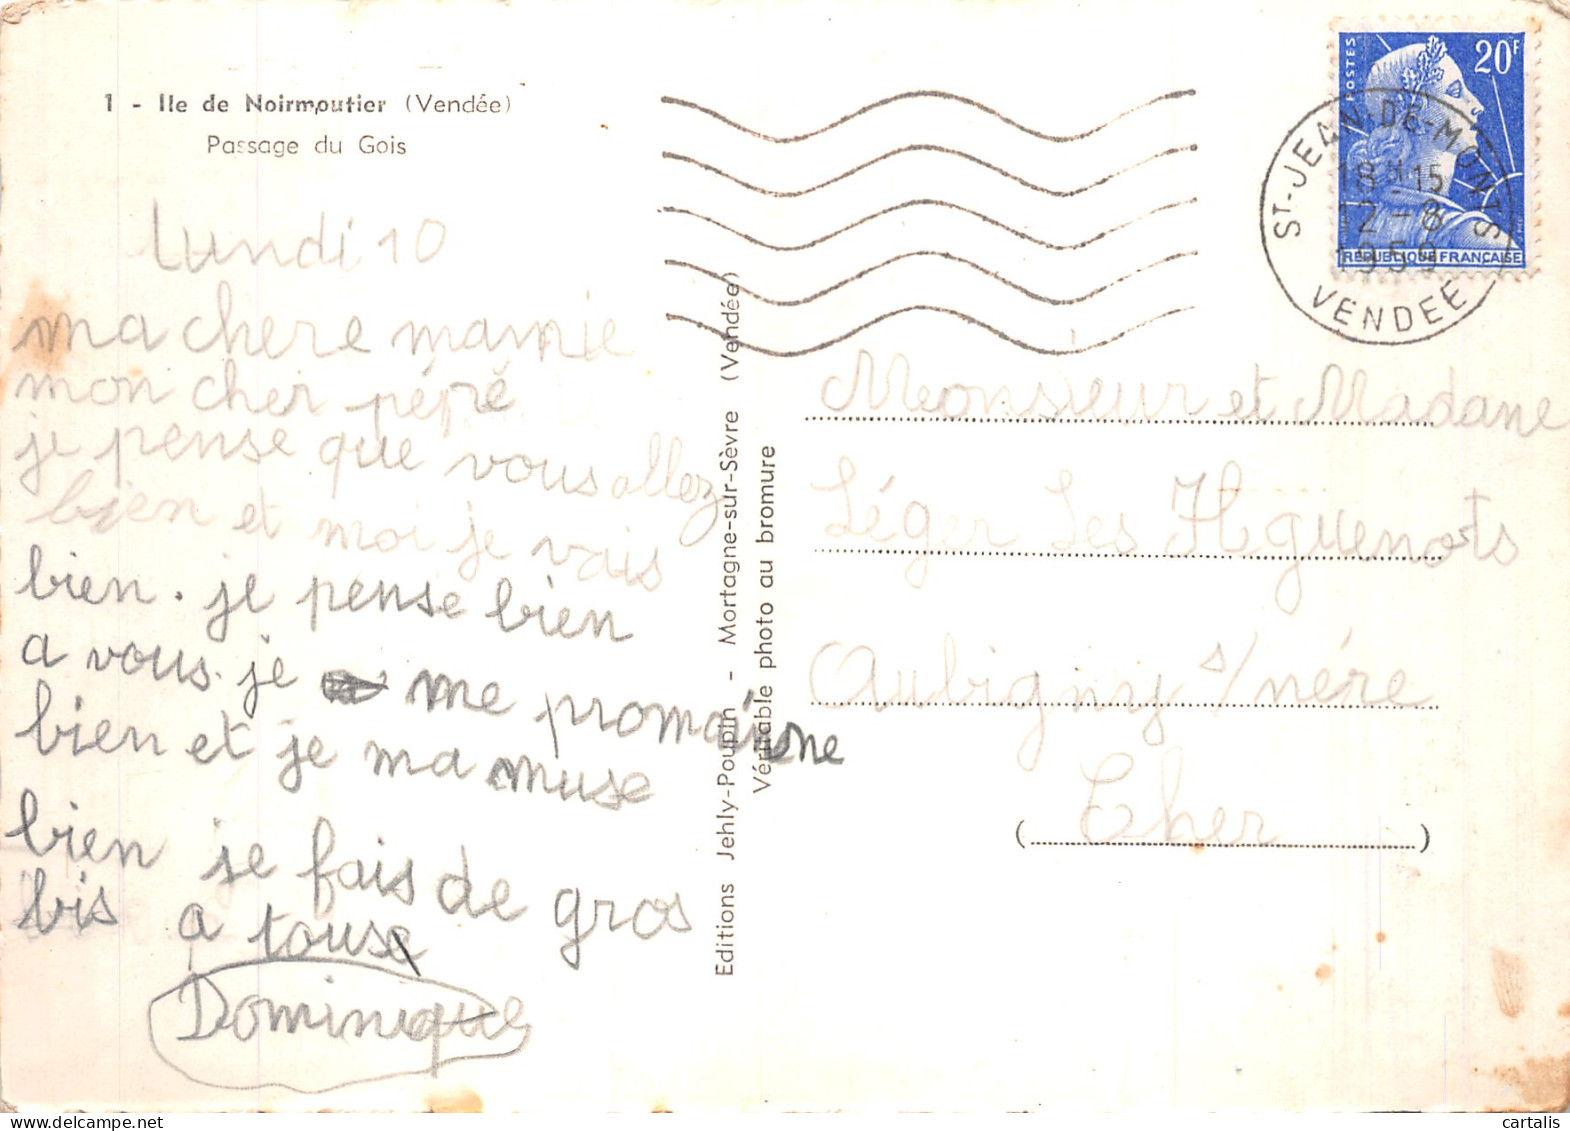 1 - Ile de Noirmoutier (Vendée)
Passage du Gois
Lundi 10
ma chere mamie
mon cher pépé
je pense que vous allez
bien et moi je vais
bien. je pense bien
a vous. je me promainne
bien et je ma muse
bien je fais de gros
bis a touse
Dominique
Editions Jehly-Poupin - Mortagne-sur-Sèvre (Vendée)
Véritable photo au bromure
POSTES
20F
REPUBLIQUE FRANÇAISE
ST-JEAN-DE-MONTS
18H15
12-8
1959
VENDEE
Monsieur et Madane
Léger Les Hguenots
Aubigny s/nére
(Cher)
cartalis